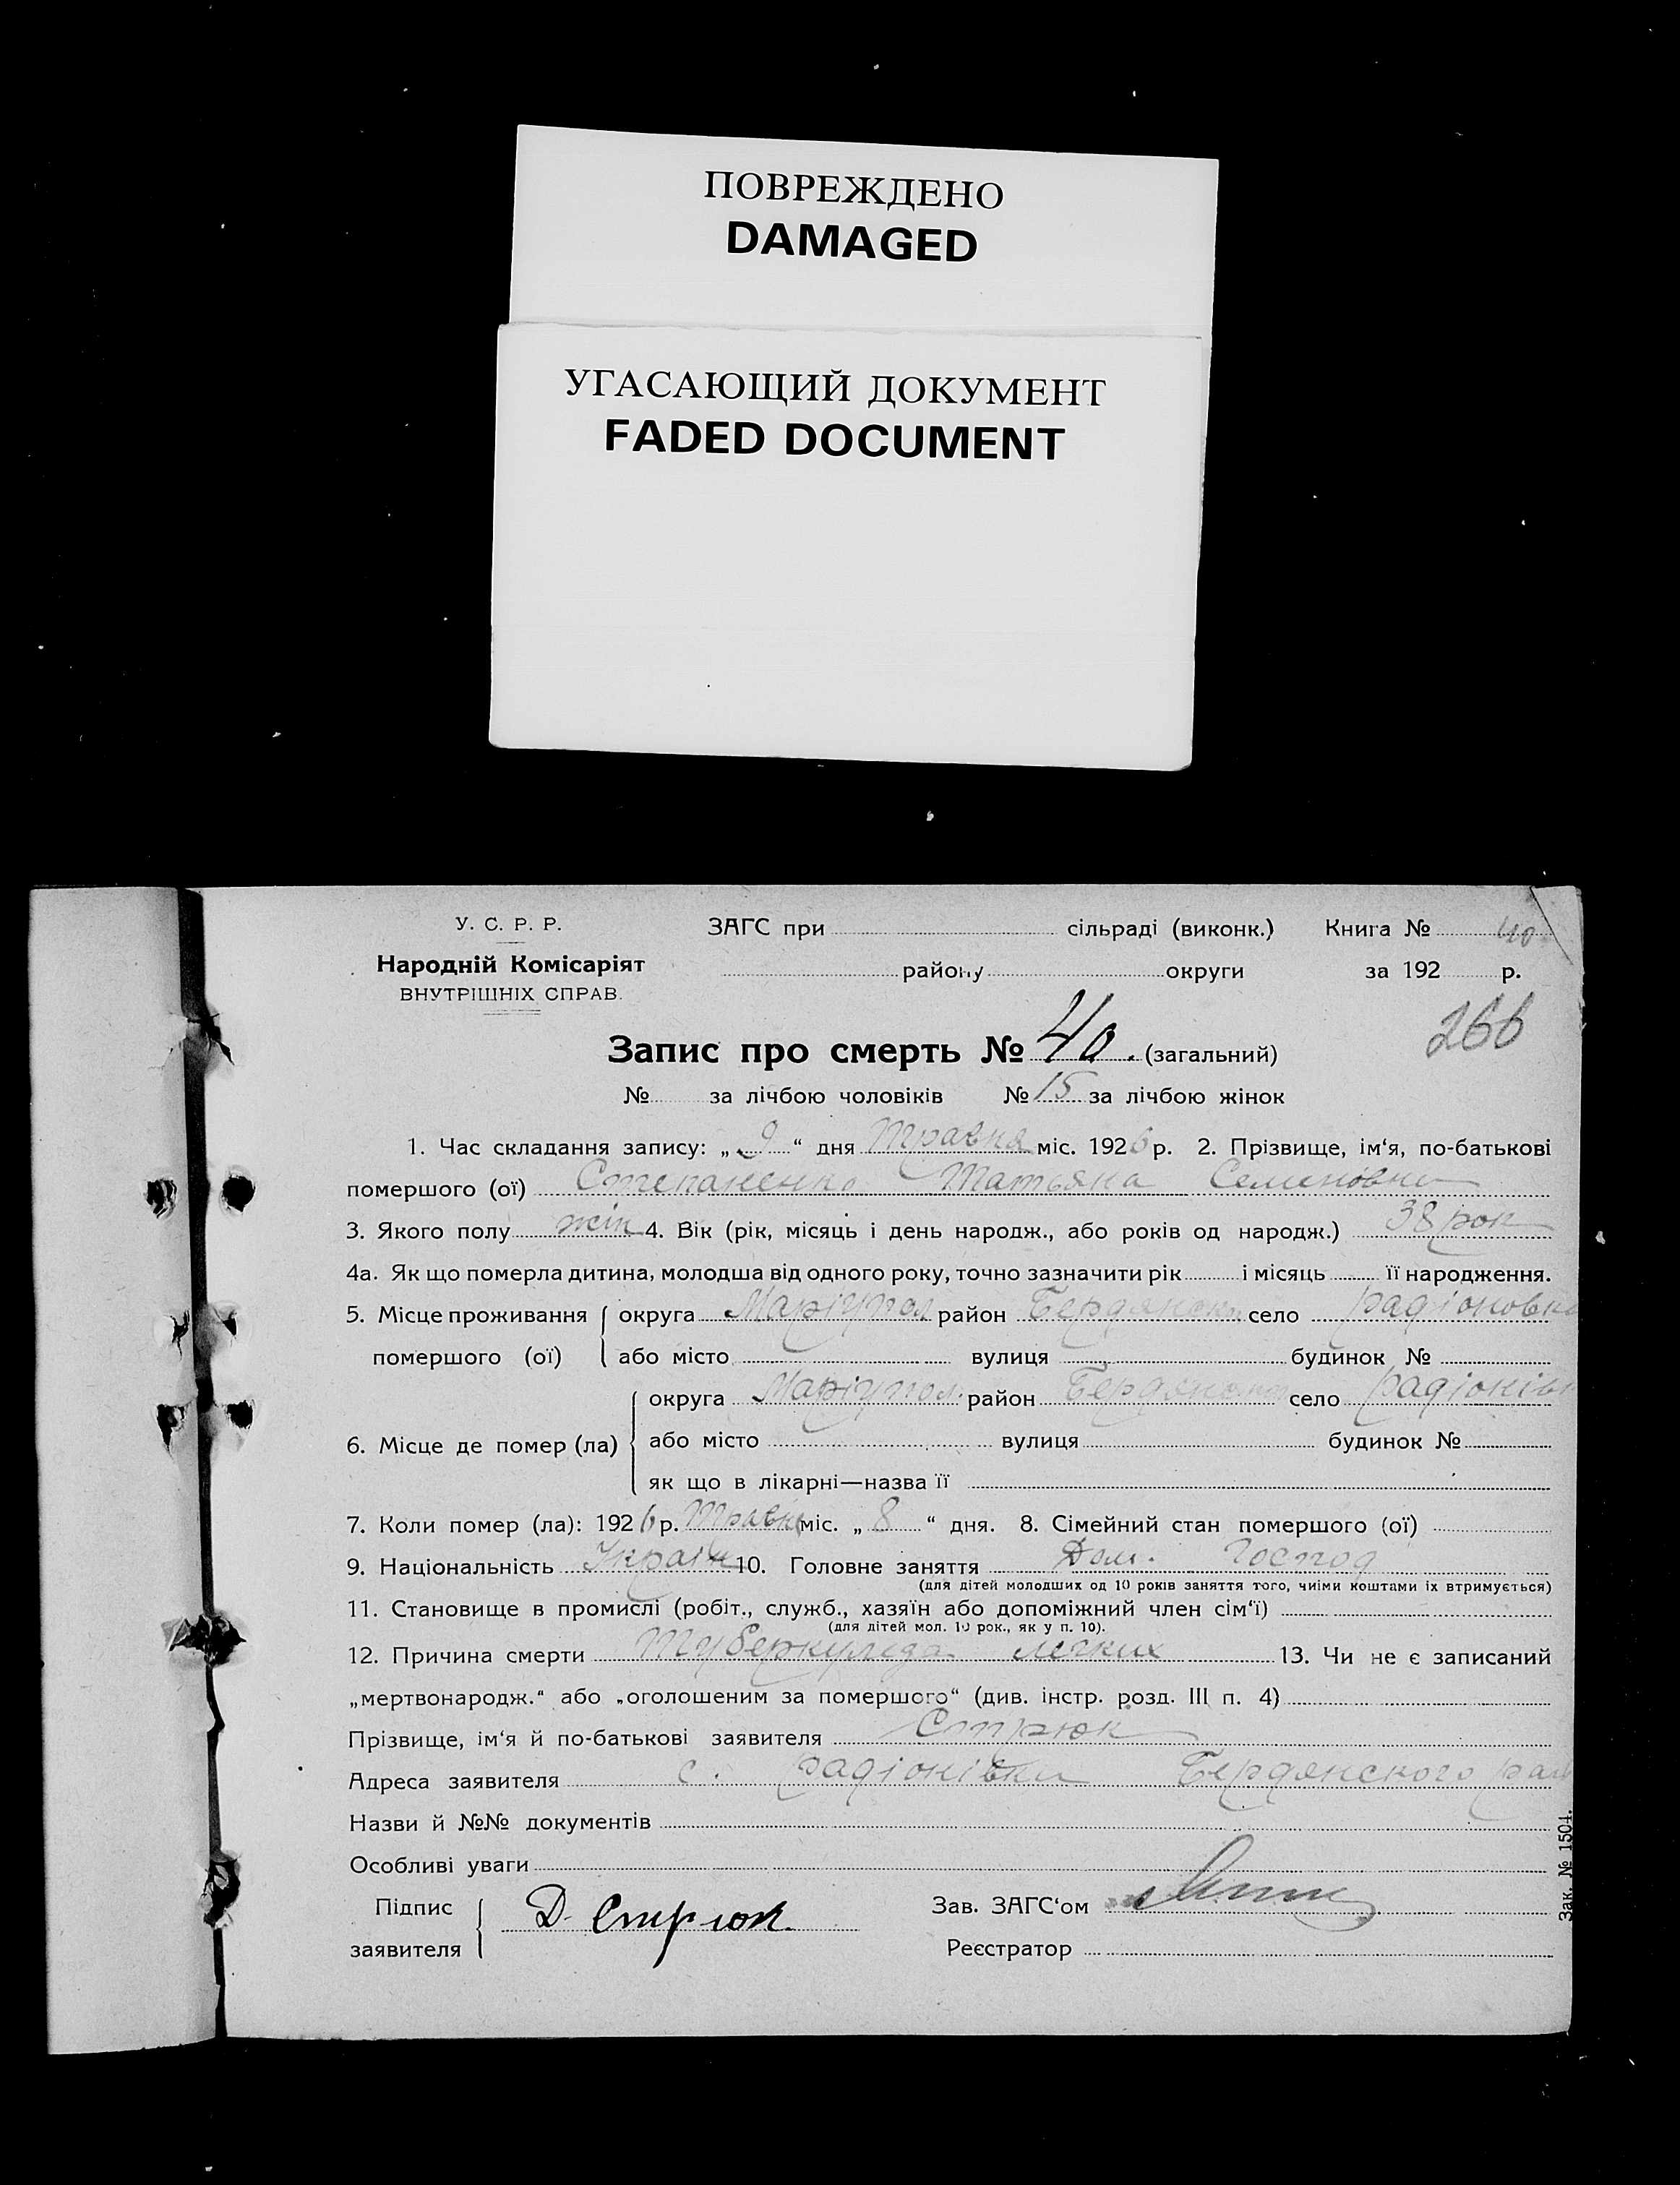 ПОВРЕЖДЕНО
DAMAGED
УГАСАЮЩИЙ ДОКУМЕНТ
FADED DOCUMENT
У. С. Р. Р. ЗАГС при сільраді (виконк.) Книга № 40
Народній Комісаріят району округи за 192 р.
ВНУТРІШНІХ СПРАВ.
266
Запис про смерть № 40. (загальний)
№ за лічбою чоловіків № 15 за лічбою жінок
1. Час складання запису: „ 9 “ дня Травня міс. 1926 р. 2. Прізвище, ім‘я, по-батькові
помершого (ої) Степаненко Татьяна Семеновна
3. Якого полу жін 4. Вік (рік, місяць і день народж., або років од народж.) 38 рок
4а. Як що померла дитина, молодша від одного року, точно зазначити рік і місяць її народження.
5. Місце проживання округа Маріупол район Бердянськ село радіоновка
помершого (ої) або місто вулиця будинок №
округа Маріупол. район Бердянськ село радіонівк
6. Місце де помер (ла) або місто вулиця будинок №
як що в лікарні—назва її
7. Коли помер (ла): 1926 р. Травня міс. „ 8 “ дня. 8. Сімейний стан помершого (ої)
9. Національність Україн 10. Головне заняття Дом. Господ
(для дітей молодших од 10 років заняття того, чиїми коштами їх втримується)
11. Становище в промислі (робіт., служб., хазяїн або допоміжний член сім‘ї)
(для дітей мол. 10 рок., як у п. 10).
12. Причина смерти Туберкульоза легких 13. Чи не є записаний
„мертвонародж.“ або „оголошеним за помершого“ (див. інстр. розд. III п. 4)
Прізвище, ім‘я й по-батькові заявителя Стрюк
Адреса заявителя с. радіонівки Бердянского рай
Назви й №№ документів
Особливі уваги
Підпис Д. Стрюк. Зав. ЗАГС‘ом
заявителя Реєстратор
Зак. № 1504.